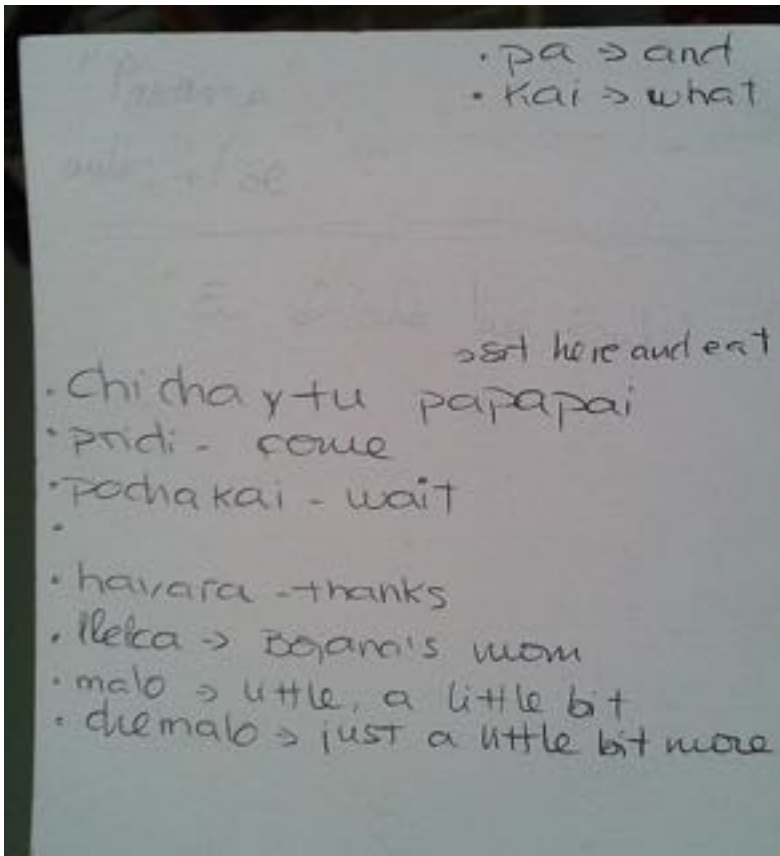 · pa → and
· Kai → what
→ sit here and eat
· Chicha y tu papapai
· pridi - come
· pocha kai - wait
·
· havara - thanks
· → Bojana's mom
· malo → little, a little bit
· che malo → just a little bit more